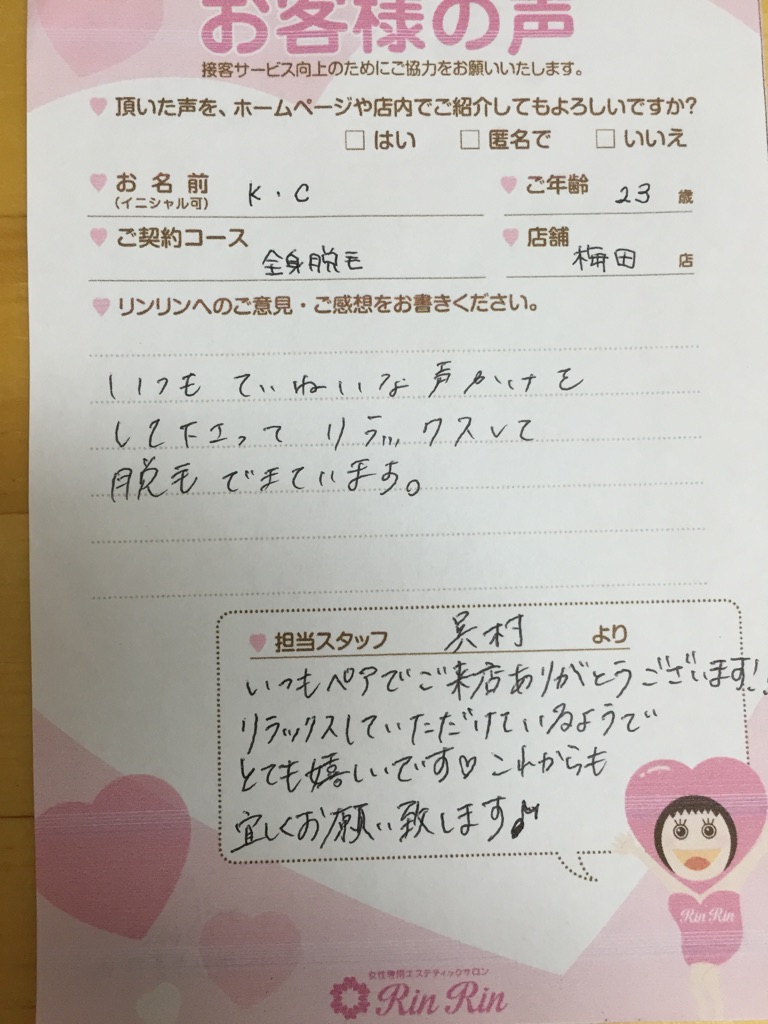 お客様の声
接客サービス向上のためにご協力をお願いいたします。
頂いた声を、ホームページや店内でご紹介してもよろしいですか?
□ はい □ 匿名で □ いいえ
お名前 K.C ご年齢 23 歳
(イニシャル可)
ご契約コース 全身脱毛 店舗 梅田 店
リンリンへのご意見・ご感想をお書きください。
いつもていねいな声かけを
して下さってリラックスして
脱毛できています。
担当スタッフ 呉村 より
いつもペアでご来店ありがとうございます!!
リラックスしていただけているようで
とても嬉しいです♡これからも
宜しくお願い致します♪
Rin Rin
女性専用エステティックサロン
Rin Rin